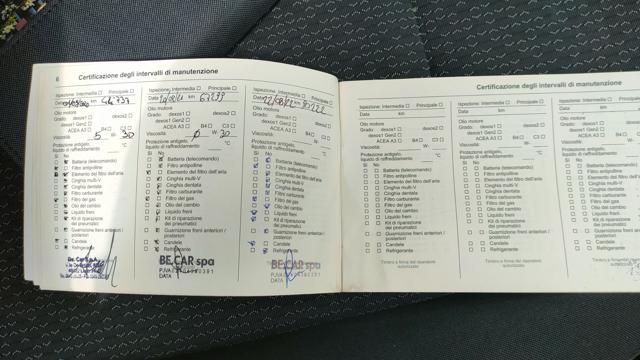 6 Certificazione degli intervalli di manutenzione
Ispezione: Intermedia Principale
Data km 44737
Olio motore
Grado: dexos1 dexos2
dexos1 Gen2
ACEA A3 B4 C3
Viscosità: 5 W- 30
Protezione antigelo, °C
liquido di raffreddamento
Sì No
Batteria (telecomando)
Filtro antipolline
Elemento del filtro dell'aria
Cinghia multi-V
Cinghia dentata
Filtro carburante
Filtro del gas
Olio del cambio
Liquido freni
Kit di riparazione
dei pneumatici
Guarnizione freni anteriori /
posteriori
Candele
Refrigerante
Ispezione: Intermedia Principale
Data km
Olio motore
Grado: dexos1 dexos2
dexos1 Gen2
ACEA A3 B4 C3
Viscosità: W- 30
Protezione antigelo, °C
liquido di raffreddamento
Sì No
Batteria (telecomando)
Filtro antipolline
Elemento del filtro dell'aria
Cinghia multi-V
Cinghia dentata
Filtro carburante
Filtro del gas
Olio del cambio
Liquido freni
Kit di riparazione
dei pneumatici
Guarnizione freni anteriori /
posteriori
Candele
Refrigerante
BE.CAR spa
P.IVA
DATA
Ispezione: Intermedia Principale
Data km
Olio motore
Grado: dexos1 dexos2
dexos1 Gen2
ACEA A3 B4 C3
Viscosità: W-
Protezione antigelo, °C
liquido di raffreddamento
Sì No
Batteria (telecomando)
Filtro antipolline
Elemento del filtro dell'aria
Cinghia multi-V
Cinghia dentata
Filtro carburante
Filtro del gas
Olio del cambio
Liquido freni
Kit di riparazione
dei pneumatici
Guarnizione freni anteriori /
posteriori
Candele
Refrigerante
BE.CAR spa
P.IVA
DATA
Certificazione degli intervalli di manutenzione
Ispezione: Intermedia Principale
Data km
Olio motore
Grado: dexos1 dexos2
dexos1 Gen2
ACEA A3 B4 C3
Viscosità: W-
Protezione antigelo, °C
liquido di raffreddamento
Sì No
Batteria (telecomando)
Filtro antipolline
Elemento del filtro dell'aria
Cinghia multi-V
Cinghia dentata
Filtro carburante
Filtro del gas
Olio del cambio
Liquido freni
Kit di riparazione
dei pneumatici
Guarnizione freni anteriori /
posteriori
Candele
Refrigerante
Timbro e firma del riparatore
autorizzato
Ispezione: Intermedia Principale
Data km
Olio motore
Grado: dexos1 dexos2
dexos1 Gen2
ACEA A3 B4 C3
Viscosità: W-
Protezione antigelo, °C
liquido di raffreddamento
Sì No
Batteria (telecomando)
Filtro antipolline
Elemento del filtro dell'aria
Cinghia multi-V
Cinghia dentata
Filtro carburante
Filtro del gas
Olio del cambio
Liquido freni
Kit di riparazione
dei pneumatici
Guarnizione freni anteriori /
posteriori
Candele
Refrigerante
Timbro e firma del riparatore
autorizzato
Ispezione: Intermedia
Data
Olio motore
Grado: dexos1
dexos1 Gen2
ACEA A3
Viscosità:
Protezione antigelo,
liquido di raffreddamento
Sì No
Batteria (telecomando)
Filtro antipolline
Elemento del filtro dell'aria
Cinghia multi-V
Cinghia dentata
Filtro carburante
Filtro del gas
Olio del cambio
Liquido freni
Kit di riparazione
dei pneumatici
Guarnizione freni anteriori
posteriori
Candele
Refrigerante